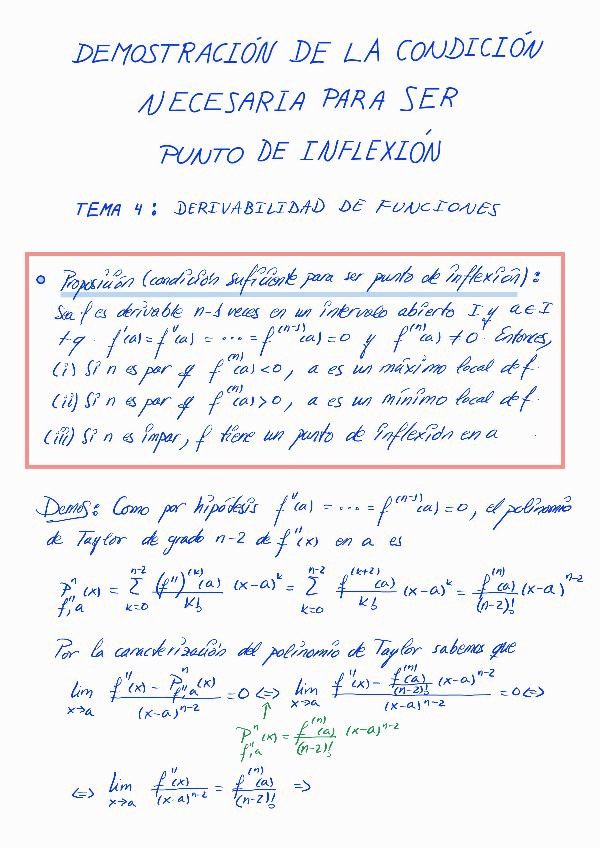 DEMOSTRACIÓN DE LA CONDICIÓN
NECESARIA PARA SER
PUNTO DE INFLEXIÓN
TEMA 4: DERIVABILIDAD DE FUNCIONES
• Proposición (condición suficiente para ser punto de inflexión):
Sea f es derivable n-1 veces en un intervalo abierto I y a ∈ I
tq. f'(a) = f''(a) = ... = f^(n-1)(a) = 0 y f^(n)(a) ≠ 0. Entonces,
(i) Si n es par y f^(n)(a) < 0, a es un máximo local de f.
(ii) Si n es par y f^(n)(a) > 0, a es un mínimo local de f.
(iii) Si n es impar, f tiene un punto de inflexión en a
Demos: Como por hipótesis f''(a) = ... = f^(n-1)(a) = 0, el polinomio
de Taylor de grado n-2 de f''(x) en a es
P^n_{f'',a}(x) = ∑_{k=0}^{n-2} (f'')^(k)(a)/k! (x-a)^k = ∑_{k=0}^{n-2} f^(k+2)(a)/k! (x-a)^k = f^(n)(a)/(n-2)! (x-a)^{n-2}
Por la caracterización del polinomio de Taylor sabemos que
lim_{x→a} (f''(x) - P^n_{f'',a}(x))/(x-a)^{n-2} = 0 <=> lim_{x→a} (f''(x) - f^(n)(a)/(n-2)! (x-a)^{n-2})/(x-a)^{n-2} = 0 <=>
↑
P^n_{f'',a}(x) = f^(n)(a)/(n-2)! (x-a)^{n-2}
<=> lim_{x→a} f''(x)/(x-a)^{n-2} = f^(n)(a)/(n-2)! =>